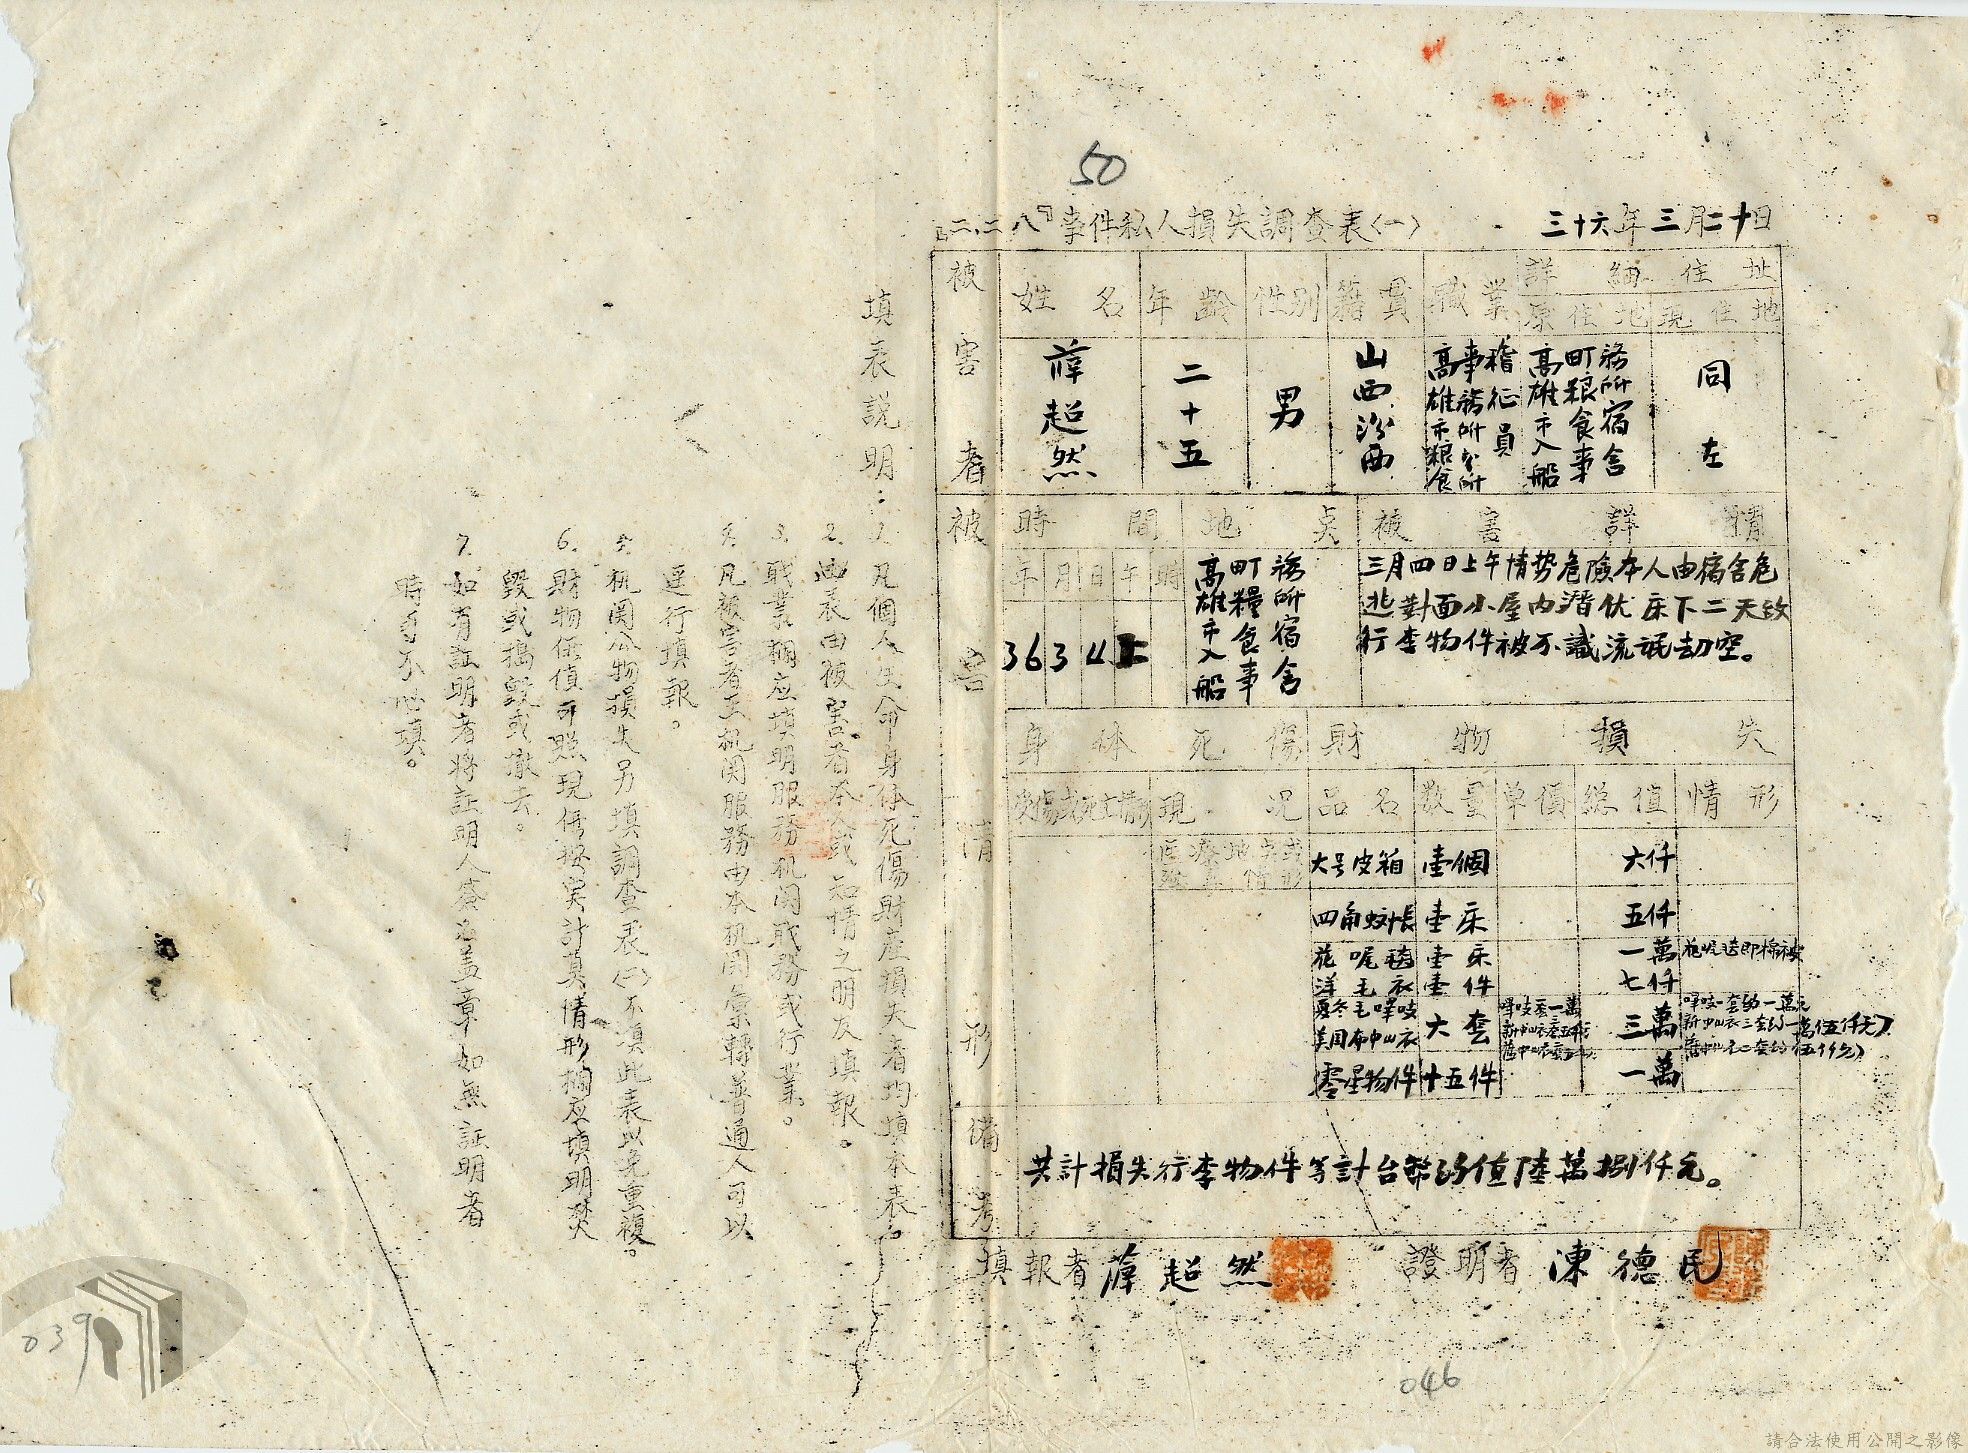 50
『二.二八』事件私人損失調查表〈一〉
三十六年三月二十日
被害者
姓名
年齡
性別
籍貫
職業
詳細住址
原住地
現住地
薛超然
二十五
男
山西汾西
高雄市粮食
事務所本所
稽征員
高雄市入船
町粮食事
務所宿舍
同左
被害情形
時間
地点
被害詳情
年
月
日
午
時
36
3
4
上
高雄市入船
町糧食事
務所宿舍
三月四日上午情势危險本人由宿舍危
逃對面小屋內潛伏床下二天致
行李物件被不識流氓劫空。
身体死傷
財物損失
受傷或死亡情形
現況
品名
数量
单價
総值
情形
医療地点或
大号皮箱
壹個
六仟
四角蚊帳
壹床
五仟
花呢毯
壹床
一萬
花呢毯即棉被
洋毛衣
壹件
七仟
夏冬毛嗶吱
美国布中山衣
六套
嗶吱壹套一萬
三萬
嗶吱一套約一萬元
新中山衣三套約一萬伍仟元
舊中山衣二套約伍仟元
零星物件
十五件
一萬
備考
共計損失行李物件等計台幣約值陸萬捌仟元。
填報者 薛超然
證明者 涷德民
填表説明：
1.凡個人生命身体死傷財產損失者均填本表。
2.此表由被害者本人或知情之朋友填報。
3.职業欄应填明服務机関职務或行業。
4.凡被害者在机関服務由本机関彙轉普通人可以
逕行填報。
5.机関公物損失另填調查表(二)不填此表以免重複。
6.財物価值可照現価按実計算情形欄应填明焚
毀或搗毀或搬去。
7.如有証明者將証明人簽名盖章如無証明者
時可不必填。
039
046
請合法使用公開之影像